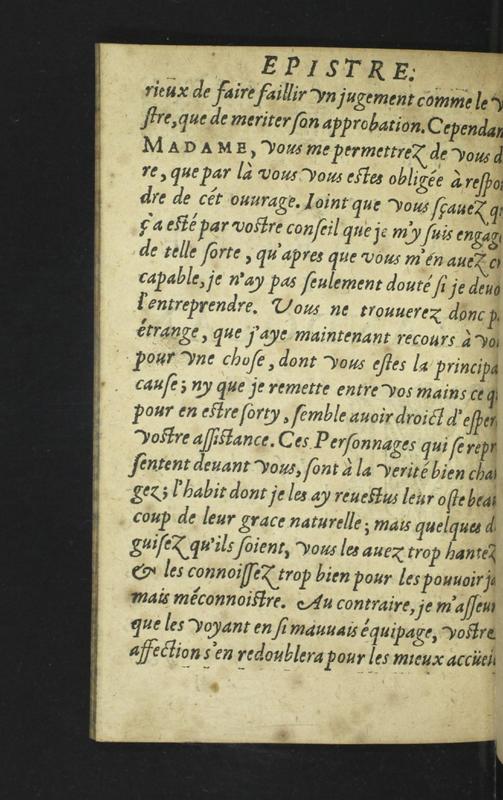 EPISTRE.
rieux de faire faillir vn jugement comme le
ſtre, que de meriter ſon approbation. Cependan
MADAME, vous me permettrez de vous d
re, que par là vous vous eſtes obligée à reſpo
dre de cét ouurage. Ioint que vous ſçauez q
ç'a eſté par voſtre conſeil que je m'y ſuis engag
de telle ſorte, qu'apres que vous m'en auez c
capable, je n'ay pas ſeulement douté ſi je deuo
l'entreprendre. Vous ne trouuerez donc p
étrange, que j'aye maintenant recours à vo
pour vne choſe, dont vous eſtes la principa
cauſe; ny que je remette entre vos mains ce q
pour en eſtre ſorty, ſemble auoir droict d'eſper
voſtre aſſiſtance. Ces Perſonnages qui ſe repr
ſentent deuant vous, ſont à la verité bien chan
gez; l'habit dont je les ay reueſtus leur oſte beau
coup de leur grace naturelle; mais quelques d
guiſez qu'ils ſoient, vous les auez trop hantez
& les connoiſſez trop bien pour les pouuoir ja
mais méconnoiſtre. Au contraire, je m'aſſeur
que les voyant en ſi mauuais équipage, voſtre
affection s'en redoublera pour les mieux accüeil